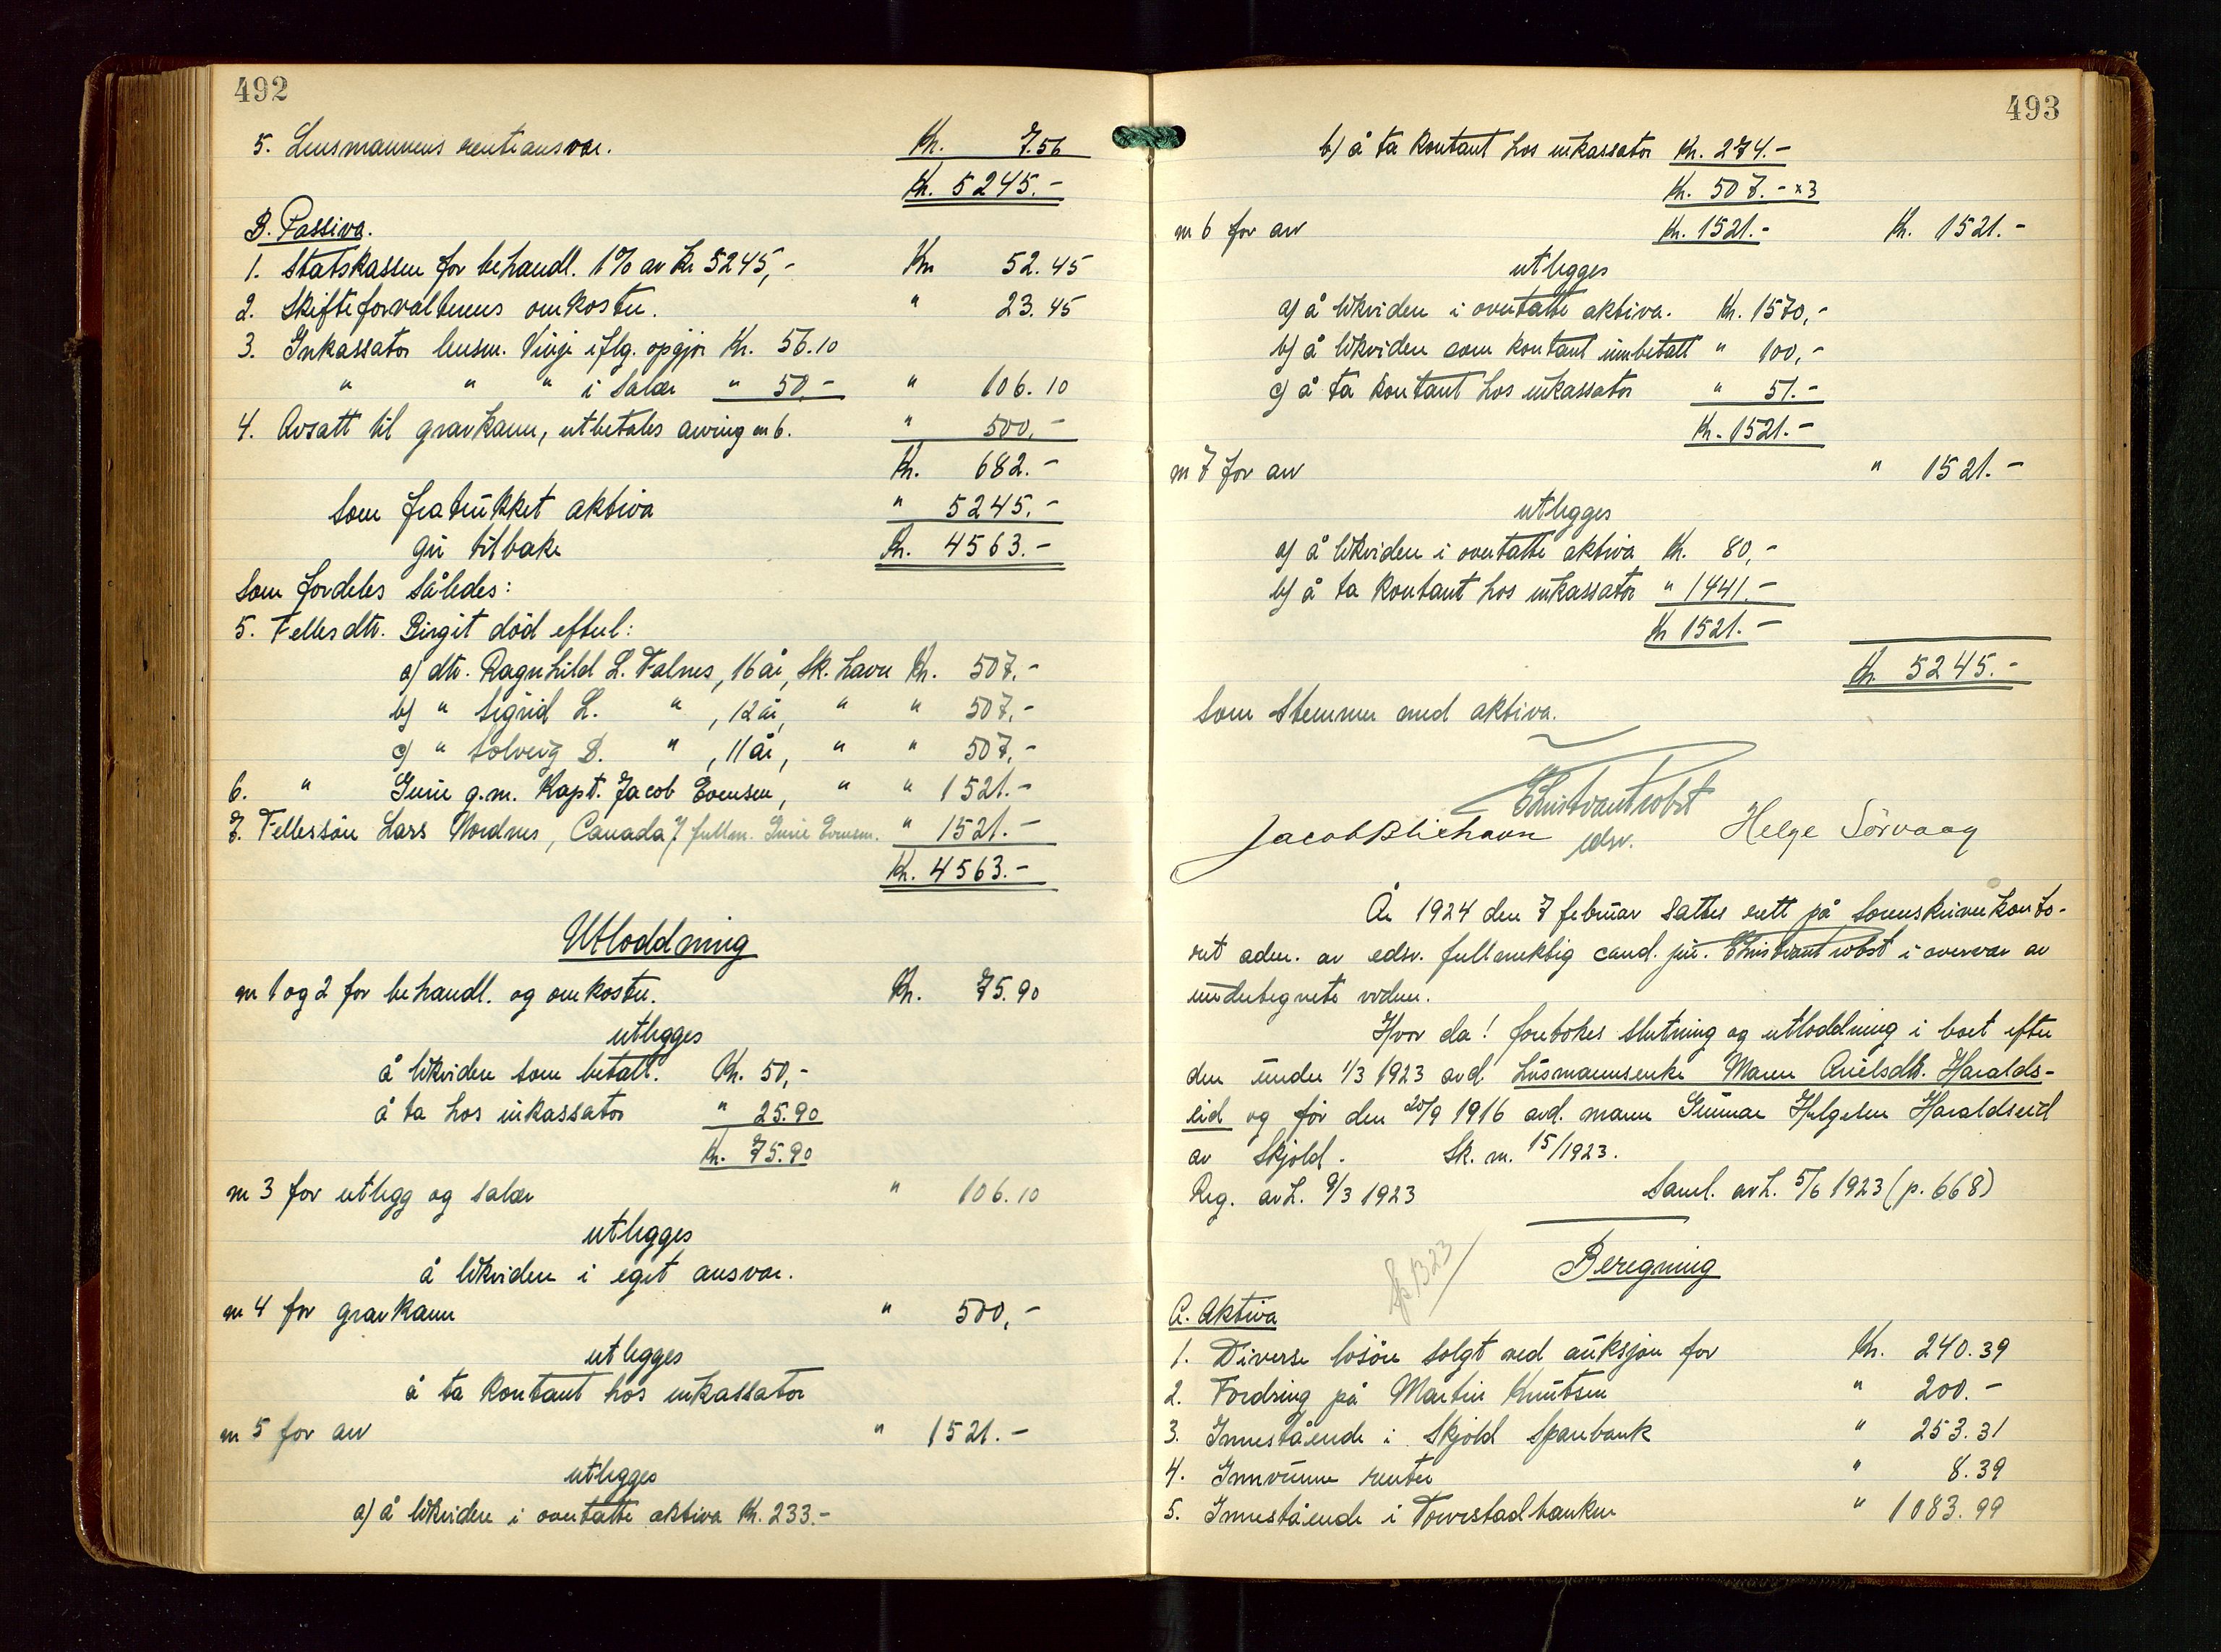 492
5. Lensmannens renteansvar. Kr. 7.56
Kr. 5245.-
B. Passiva.
1. Statskassen for behandl. 1% av kr 5245,- Kr. 52.45
2. Skifteforvalterens omkostn. " 23.45
3. Inkassator lensm. Vinje iflg. opgjør Kr. 56.10
" " " i salær " 50.- " 106.10
4. Avsatt til gravkann, utbetales arving nr 6. " 500.-
Kr. 682.-
som fratrukket aktiva " 5245.-
gir tilbake Kr. 4563.-
som fordeles således:
5. Fellesdtr. Birgit död efterl:
a) dtr. Ragnhild L. Falnes, 16 år, Sk.havn Kr. 507.-
b) " Sigrid L. " , 12 år, " " 507.-
c) " Solveig B. " , 11 år, " " 507.-
6. " Gurie g.m. Kapt. Jacob Evensen, " " 1521.-
7. Fellessön Lars Nordnes, Canada / fullm. Gurie Evensen. " 1521.-
Kr. 4563.-
Utloddning
nr 1 og 2 for behandl. og omkostn. Kr. 75.90
utlegges
å likviden som betalt. Kr. 50,-
å ta hos inkassator " 25.90
Kr. 75.90
nr 3 for utlegg og salær " 106.10
utlegges
å likviden i eget ansvar.
nr 4 for gravkann " 500,-
utlegges
å ta kontant hos inkassator
nr 5 for arv " 1521.-
utlegges
a) å likviden i overtatte aktiva Kr. 233.-
493
b) å ta kontant hos inkassator Kr. 274.-
Kr. 507.- x3
nr 6 for arv Kr. 1521.- Kr. 1521.-
utlegges
a) å likviden i overtatte aktiva. Kr. 1570,-
b) å likviden som kontant innbetalt " 100,-
c) å ta kontant hos inkassator " 51.-
Kr. 1521.-
nr 7 for arv " 1521.-
utlegges
a) å likviden i overtatte aktiva Kr. 80,-
b) å ta kontant hos inkassator " 1441.-
Kr 1521.-
Kr. 5245.-
som stemmer med aktiva.
Jacob Blikhavn edsv. Helge Sörvaag
År 1924 den 7 februar sattes rett på sorenskriverkonto-
ret adm. av edsv. fullmektig cand. jur. i overvær av
undertegnete vidner.
Hvor da! foretokes slutning og utloddning i boet efter
den under 1/3 1923 avd. Husmannsenke Maren Arielsdtr. Haralds-
eid og før den 20/9 1916 avd. mann Gunnar Helgesen Haraldseid
av Skjold. Sk. nr. 15/1923.
Reg. avh. 9/3 1923 Saml. avh. 5/6 1923 (p. 668)
Beregning
A. Aktiva
1. Diverse lösöre solgt ved auksjon for Kr. 240.39
2. Fordring på Martin Knutsen " 200.-
3. Innestående i Skjold Sparebank " 253.31
4. Innvunne renter " 8.39
5. Innestående i Torvestadbanken " 1083.99